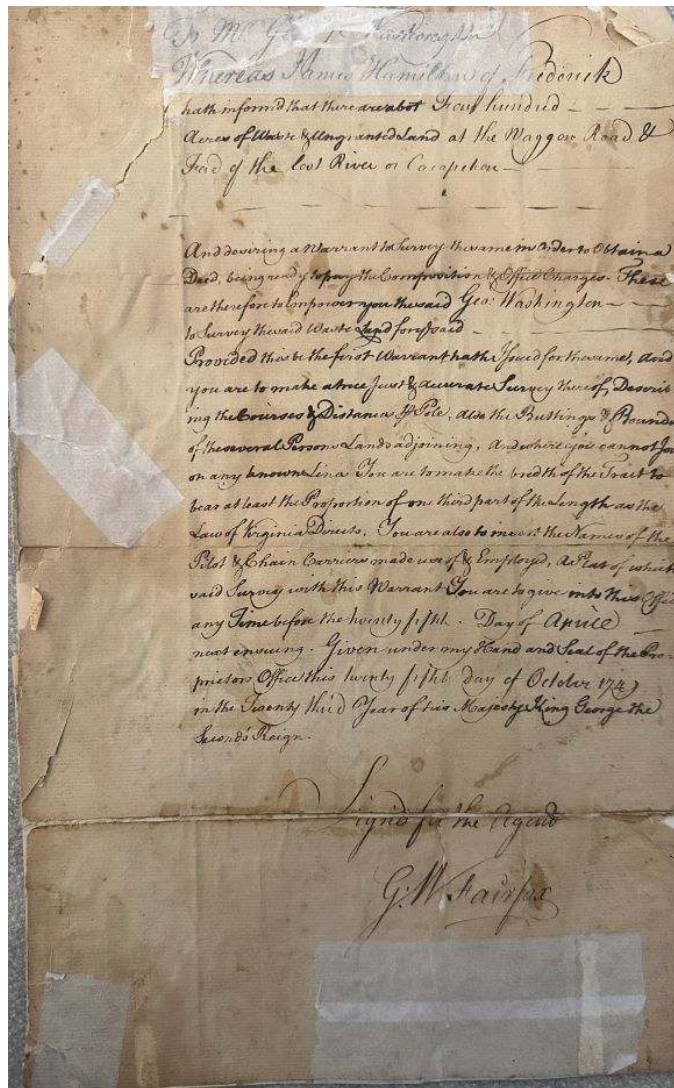 To Mr Geo Washington
Whereas James Hamilton of Frederick
hath inform'd that there are abot Four hundred
Acres of Waste & Ungranted Land at the Waggon Road &
Ford of the lost River or Cacapehon
And desiring a Warrant to Survey the same in Order to Obtain a
Deed, being ready to pay the Composition & Office Charges. These
are therefore to Empower you the said Geo: Washington
to Survey the said Waste Land foresaid
Provided this be the first Warrant hath Issued for the same, And
you are to make a true Just & accurate Survey thereof, Describ
ing the Courses & Distances Pole, also the Buttings & Bounds
of the several Persons Lands adjoining, And where you cannot Joi
on any known Line You are to make the bredth of the Tract to
bear at least the Proportion of one third part of the Length as the
Law of Virginia Directs. You are also to insert the Names of the
Pilot & Chain Carriers made use of & Employ'd, a Plat of which
said Survey with this Warrant You are to give into this Office
any Time before the twenty fifth Day of Aprill
next ensuing. Given under my Hand and Seal of the Pro-
prietors Office this twenty fifth day of October 1749
in the Twenty third Year of his Majesty King George the
Second's Reign.
Signd for the Agend
G: W Fairfax